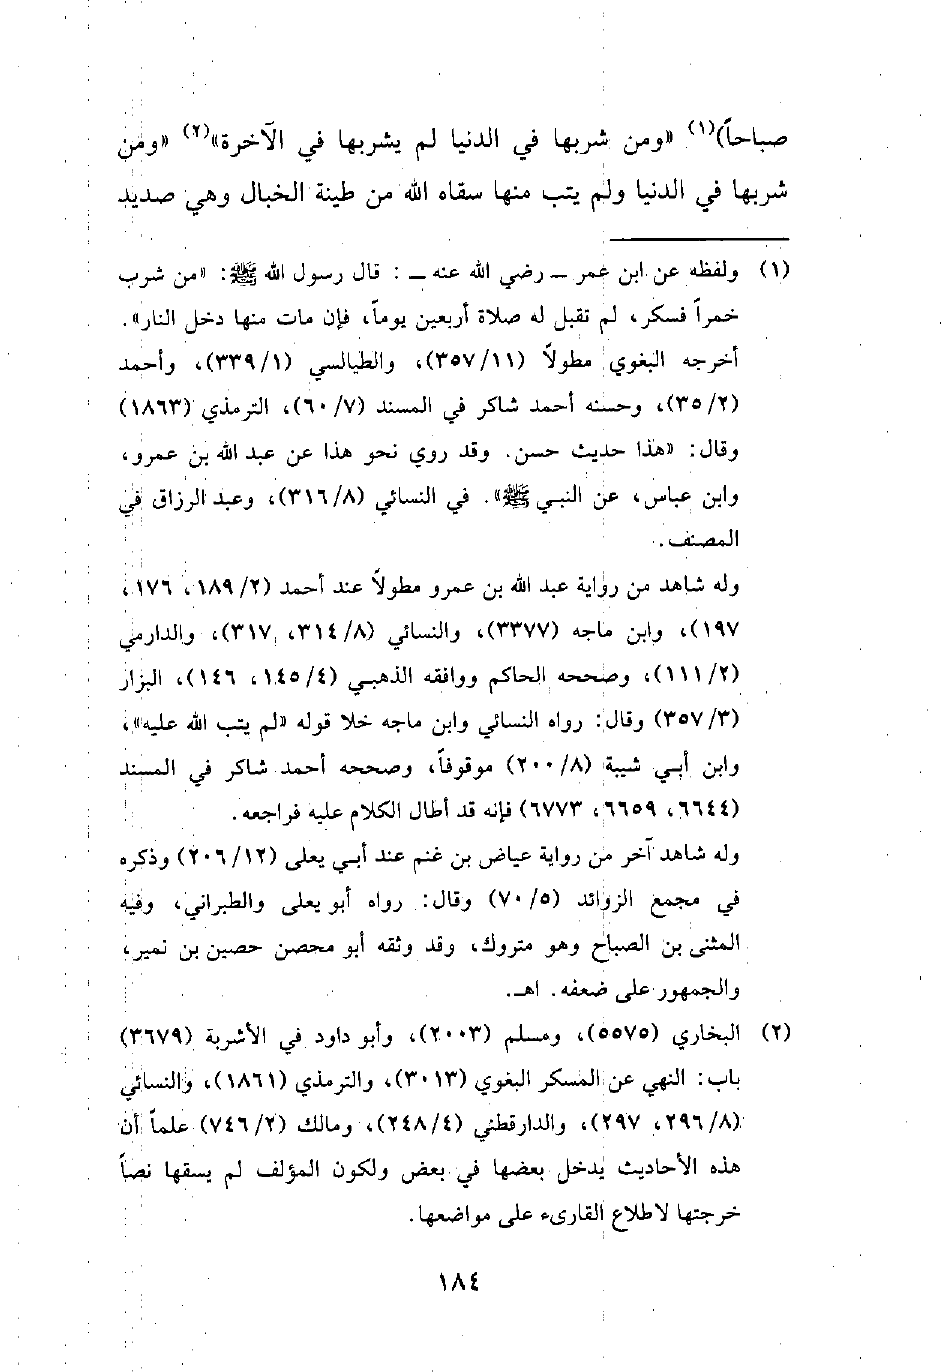 صباحاً)(١) «ومن شربها في الدنيا لم يشربها في الآخرة»(٢) «ومن
شربها في الدنيا ولم يتب منها سقاه الله من طينة الخبال وهي صديد
(١) ولفظه عن ابن عمر ــ رضي الله عنه ــ : قال رسول الله ﷺ: «من شرب
خمراً فسكر، لم تقبل له صلاة أربعين يوماً، فإن مات منها دخل النار».
أخرجه البغوي مطولاً (١١/٣٥٧)، والطيالسي (١/٣٣٩)، وأحمد
(٢/٣٥)، وحسنه أحمد شاكر في المسند (٧/٦٠)، الترمذي (١٨٦٣)
وقال: «هذا حديث حسن. وقد روي نحو هذا عن عبد الله بن عمرو،
وابن عباس، عن النبي ﷺ». في النسائي (٨/٣١٦)، وعبد الرزاق في
المصنف.
وله شاهد من رواية عبد الله بن عمرو مطولاً عند أحمد (٢/١٨٩، ١٧٦،
١٩٧)، وابن ماجه (٣٣٧٧)، والنسائي (٨/٣١٤، ٣١٧)، والدارمي
(٢/١١١)، وصححه الحاكم ووافقه الذهبي (٤/١٤٥، ١٤٦)، البزار
(٣/٣٥٧) وقال: رواه النسائي وابن ماجه خلا قوله «لم يتب الله عليه»،
وابن أبي شيبة (٨/٢٠٠) موقوفاً، وصححه أحمد شاكر في المسند
(٦٦٤٤، ٦٦٥٩، ٦٧٧٣) فإنه قد أطال الكلام عليه فراجعه.
وله شاهد آخر من رواية عياض بن غنم عند أبي يعلى (١٢/٢٠٦) وذكره
في مجمع الزوائد (٥/٧٠) وقال: رواه أبو يعلى والطبراني، وفيه
المثنى بن الصباح وهو متروك، وقد وثقه أبو محصن حصين بن نمير،
والجمهور على ضعفه. اهـ.
(٢) البخاري (٥٥٧٥)، ومسلم (٢٠٠٣)، وأبو داود في الأشربة (٣٦٧٩)
باب: النهي عن المسكر البغوي (٣٠١٣)، والترمذي (١٨٦١)، والنسائي
(٨/٢٩٦، ٢٩٧)، والدارقطني (٤/٢٤٨)، ومالك (٢/٧٤٦) علماً أن
هذه الأحاديث يدخل بعضها في بعض ولكون المؤلف لم يسقها نصاً
خرجتها لاطلاع القارىء على مواضعها.
١٨٤